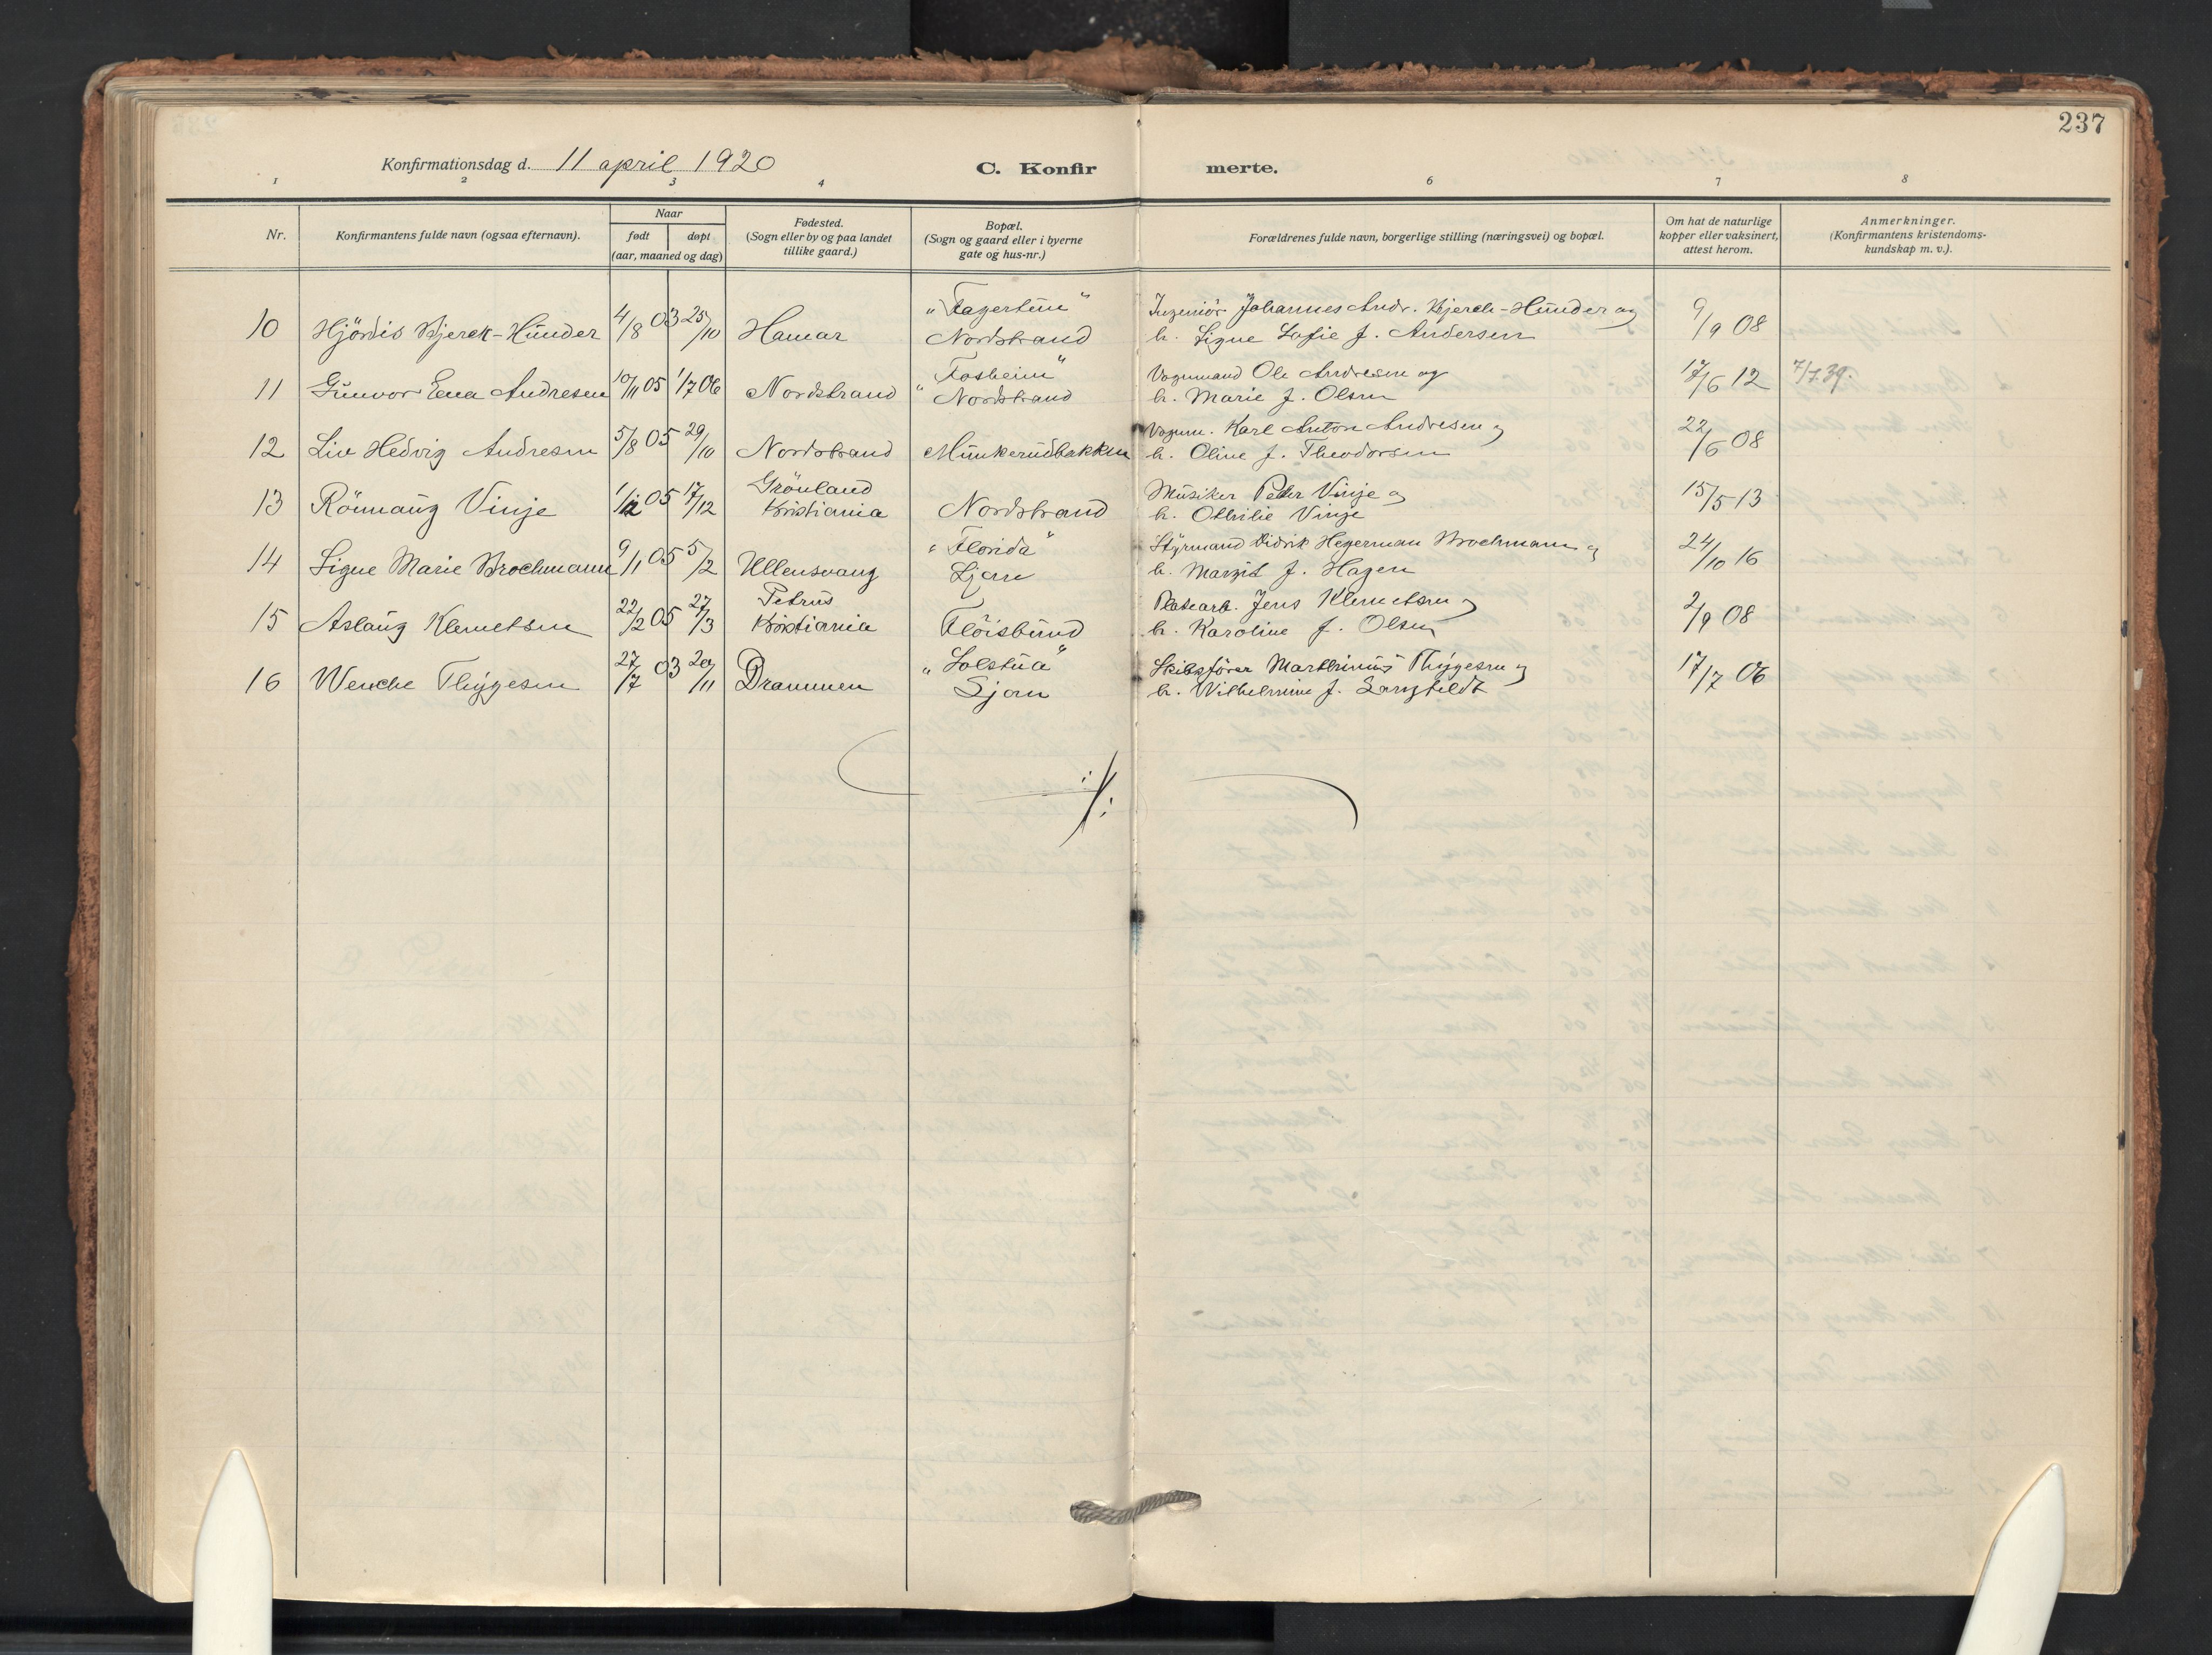 237
Konfirmationsdag d. 11 april 1920
C. Konfir merte.
1 2 3 4 6 7 8
Nr.
Konfirmantens fulde navn (ogsaa efternavn).
Naar
født døpt
(aar, maaned og dag)
Fødested.
(Sogn eller by og paa landet
tillike gaard.)
Bopæl.
(Sogn og gaard eller i byerne
gate og hus-nr.)
Forældrenes fulde navn, borgerlige stilling (næringsvei) og bopæl.
Om hat de naturlige
kopper eller vaksinert,
attest herom.
Anmerkninger.
(Konfirmantens kristendoms-
kundskap m. v.).
10 Hjördis Bjerck-Hünder 4/8 03 25/10 Hamar
"Fagertün"
Nordstrand
Ingeniör Johannes Andr. Bjerck-Hünder og
h. Signe Sofie f. Andersen
9/9 08
11 Günvor Ena Andresen 10/11 05 1/7 06 Nordstrand
"Fosheim"
Nordstrand
Vognmand Ole Andresen og
h. Marie f. Olsen
17/6 12
7/7.39.
12 Liv Hedvig Andresen 5/8 05 29/10 Nordstrand
Münkerüdbakken
Vognm. Karl Anton Andresen og
h. Oline f. Theodorsen
22/6 08
13 Rönnaüg Vinje 1/12 05 17/12
Grönland
Kristiania
Nordstrand
Müsiker Peder Vinje og
h. Othilie Vinje
15/5 13
14 Signe Marie Brochmann 9/1 05 5/2 Ullensvang
"Florida"
Ljan
Styrmand Didrik Hegerman Brochmann og
h. Margit f. Hagen
24/10 16
15 Aslaüg Klemetsen 22/2 05 27/3
Petrus
Kristiania
Flöisbünd
Platearb. Jens Klemetsen og
h. Karoline f. Olsen
2/9 08
16 Wenche Thygesen 27/7 03 29/11 Drammen
"Solstüa"
Ljan
Skibsförer Marthinius Thygesen og
h. Wilhelmine f. Langfeldt
17/7 06